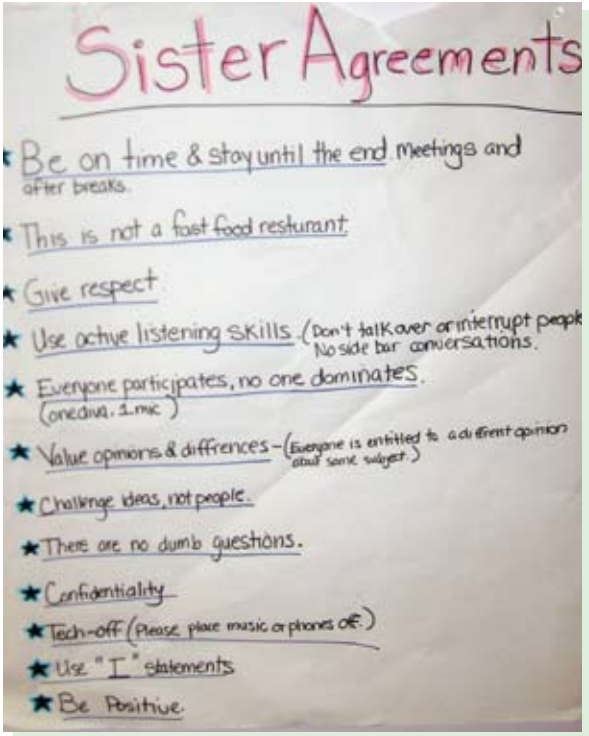 Sister Agreements
★ Be on time & stay until the end meetings and
after breaks.
★ This is not a fast food resturant.
★ Give respect.
★ Use active listening skills. (Don't talk over or interrupt people
No side bar conversations.
★ Everyone participates, no one dominates.
(one diva, 1 mic)
★ Value opinions & diffrences - (Everyone is entitled to a different opinion
about same subject.)
★ Challenge ideas, not people.
★ There are no dumb questions.
★ Confidentiality
★ Tech-off (Please place music or phones off.)
★ Use "I" statements
★ Be Positive.